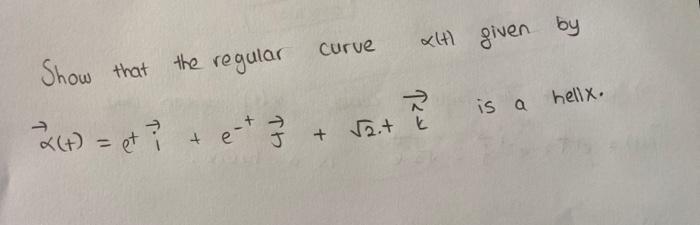 Show that the regular curve α(t) given by
α⃗(t) = eᵗ i⃗ + e⁻ᵗ j⃗ + √2.t k⃗ is a helix.